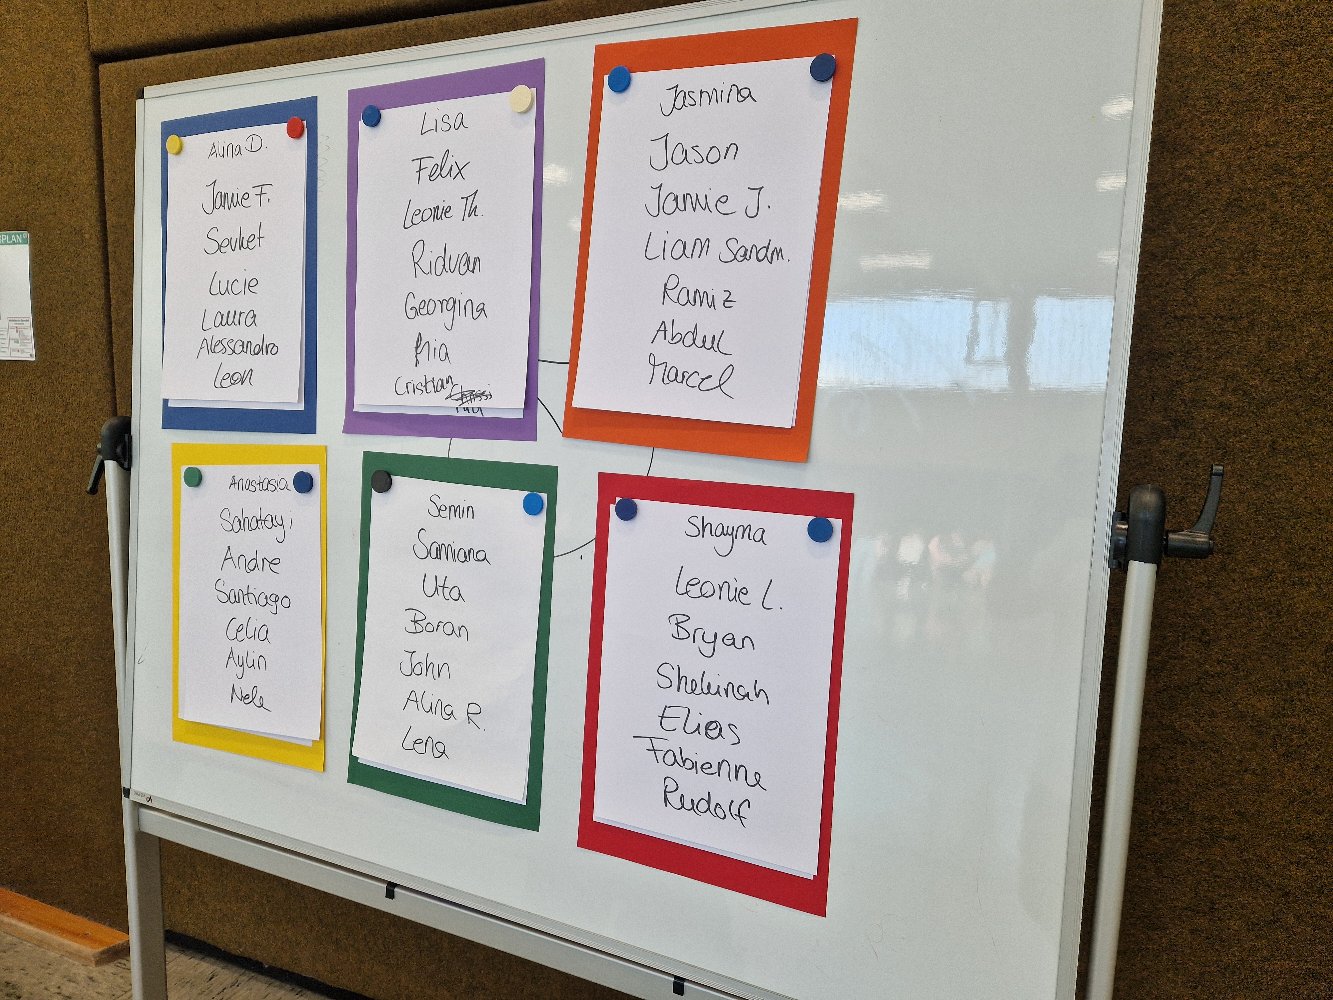 PLAN
Alina D.
Jamie F.
Sevket
Lucie
Laura
Alessandro
Leon
Lisa
Felix
Leonie Th.
Ridvan
Georgina
Mia
Cristian
Jasmina
Jason
Jamie J.
Liam Sandm.
Ramiz
Abdul
Marcel
Anastasia
Andre
Santiago
Celia
Aylin
Nele
Semin
Samiana
Uta
Boran
John
Alina R.
Lena
Shayma
Leonie L.
Bryan
Shekinah
Elias
Fabienne
Rudolf